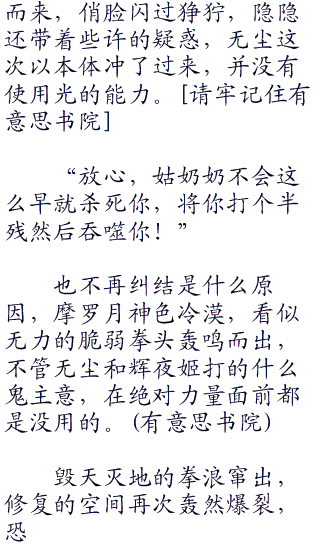 而来，俏脸闪过狰狞，隐隐
还带着些许的疑惑，无尘这
次以本体冲了过来，并没有
使用光的能力。[请牢记住有
意思书院]
“放心，姑奶奶不会这
么早就杀死你，将你打个半
残然后吞噬你！”
也不再纠结是什么原
因，摩罗月神色冷漠，看似
无力的脆弱拳头轰鸣而出，
不管无尘和辉夜姬打的什么
鬼主意，在绝对力量面前都
是没用的。(有意思书院)
毁天灭地的拳浪窜出，
修复的空间再次轰然爆裂，
恐